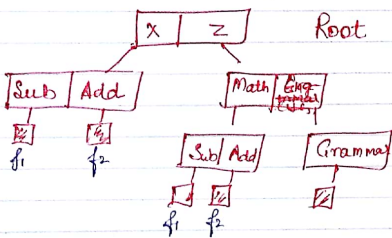 X Z Root
Sub Add Math Eng
Sub Add Grammar
f1 f2
f1 f2